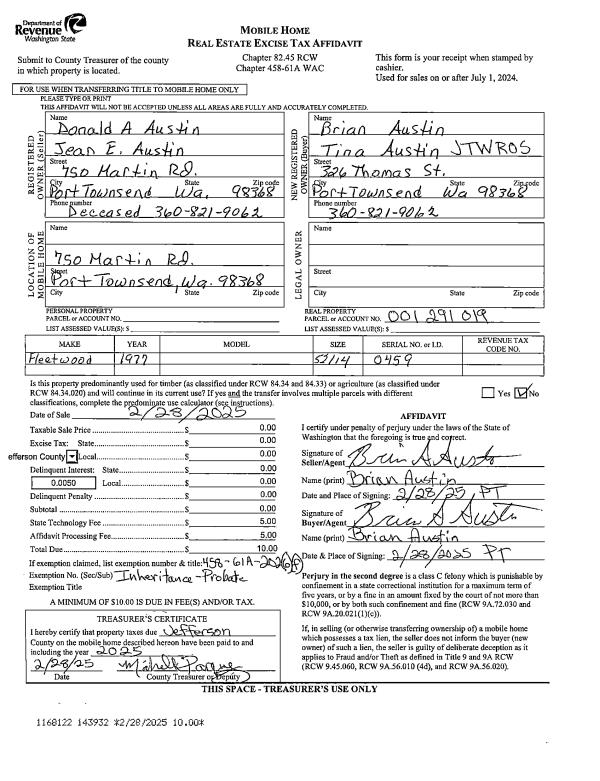 Department of
Revenue
Washington State
MOBILE HOME
REAL ESTATE EXCISE TAX AFFIDAVIT
Submit to County Treasurer of the county
in which property is located.
Chapter 82.45 RCW
Chapter 458-61A WAC
This form is your receipt when stamped by
cashier.
Used for sales on or after July 1, 2024.
FOR USE WHEN TRANSFERRING TITLE TO MOBILE HOME ONLY
PLEASE TYPE OR PRINT
THIS AFFIDAVIT WILL NOT BE ACCEPTED UNLESS ALL AREAS ARE FULLY AND ACCURATELY COMPLETED.
REGISTERED OWNER (Seller)
Name
Donald A Austin
Jean E. Austin
Street
750 Martin Rd.
City State Zip code
Port Townsend Wa. 98368
Phone number
Deceased 360-821-9062
NEW REGISTERED OWNER (Buyer)
Name
Brian Austin
Tina Austin JTWROS
Street
326 Thomas St.
City State Zip code
Port Townsend Wa 98368
Phone number
360-821-9062
LOCATION OF MOBILE HOME
Name
750 Martin Rd.
Street
Port Townsend, Wa. 98368
City State Zip code
LEGAL OWNER
Name
Street
City State Zip code
PERSONAL PROPERTY
PARCEL or ACCOUNT NO.
LIST ASSESSED VALUE(S): $
REAL PROPERTY
PARCEL or ACCOUNT NO. 001 291 019
LIST ASSESSED VALUE(S): $
MAKE YEAR MODEL SIZE SERIAL NO. or I.D. REVENUE TAX CODE NO.
Fleetwood 1977 52/14 0459
Is this property predominantly used for timber (as classified under RCW 84.34 and 84.33) or agriculture (as classified under
RCW 84.34.020) and will continue in its current use? If yes and the transfer involves multiple parcels with different
classifications, complete the predominate use calculator (see instructions).
Yes No
Date of Sale 2/28/2025
Taxable Sale Price $ 0.00
Excise Tax: State $ 0.00
efferson County Local $ 0.00
Delinquent Interest: State $ 0.00
0.0050 Local $ 0.00
Delinquent Penalty $ 0.00
Subtotal $ 0.00
State Technology Fee $ 5.00
Affidavit Processing Fee $ 5.00
Total Due $ 10.00
If exemption claimed, list exemption number & title: 458-61A-202(6)(f)
Exemption No. (Sec/Sub) Inheritance-Probate
Exemption Title
A MINIMUM OF $10.00 IS DUE IN FEE(S) AND/OR TAX.
TREASURER'S CERTIFICATE
I hereby certify that property taxes due Jefferson
County on the mobile home described hereon have been paid to and
including the year 2025
2/28/25
Date County Treasurer or Deputy
AFFIDAVIT
I certify under penalty of perjury under the laws of the State of
Washington that the foregoing is true and correct.
Signature of
Seller/Agent Brian A Austin
Name (print) Brian Austin
Date and Place of Signing: 2/28/25, PT
Signature of
Buyer/Agent Brian A Austin
Name (print) Brian Austin
Date & Place of Signing: 2/28/2025 PT
Perjury in the second degree is a class C felony which is punishable by
confinement in a state correctional institution for a maximum term of
five years, or by a fine in an amount fixed by the court of not more than
$10,000, or by both such confinement and fine (RCW 9A.72.030 and
RCW 9A.20.021(1)(c)).
If, in selling (or otherwise transferring ownership of) a mobile home
which possesses a tax lien, the seller does not inform the buyer (new
owner) of such a lien, the seller is guilty of deliberate deception as it
applies to Fraud and/or Theft as defined in Title 9 and 9A RCW
(RCW 9.45.060, RCW 9A.56.010 (4d), and RCW 9A.56.020).
THIS SPACE - TREASURER'S USE ONLY
1168122 143932 *2/28/2025 10.00*